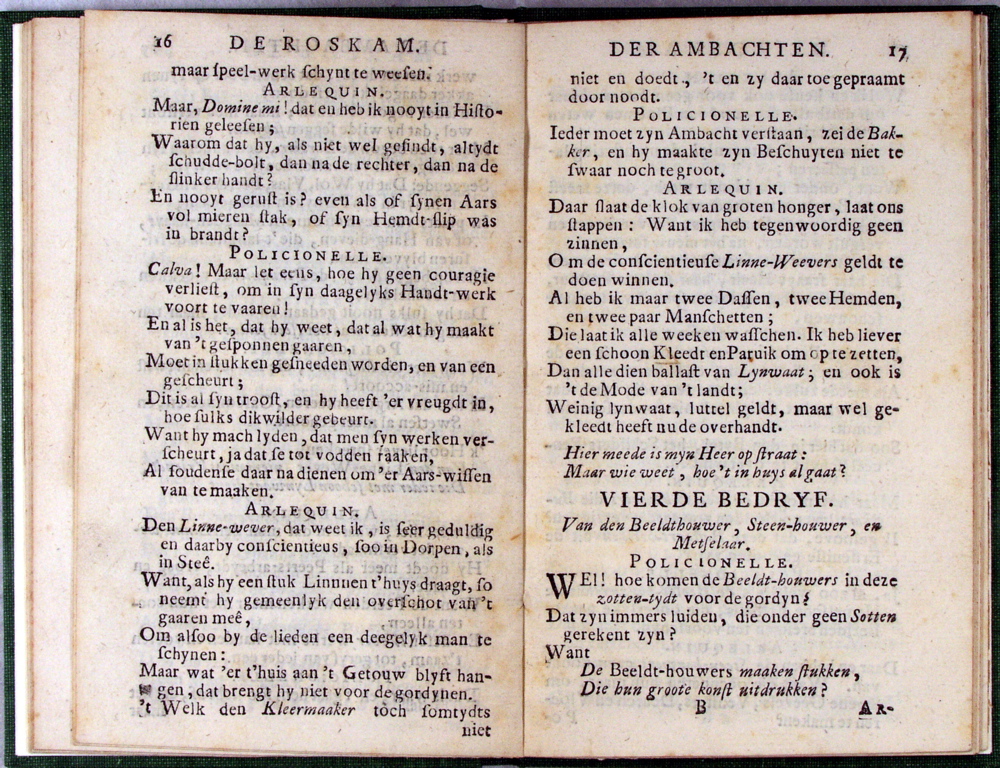 16 DE ROSKAM.
maar speel-werk schynt te weesen.
ARLEQUIN.
Maar, Domine mi! dat en heb ik nooyt in Histo-
rien geleesen;
Waarom dat hy, als niet wel gesindt, altydt
schudde-bolt, dan na de rechter, dan na de
slinker handt?
En nooyt gerust is? even als of synen Aars
vol mieren stak, of syn Hemdt-slip was
in brandt?
POLICIONELLE.
Calva! Maar let eens, hoe hy geen couragie
verliest, om in syn daagelyks Handt-werk
voort te vaaren!
En al is het, dat hy weet, dat al wat hy maakt
van 't gesponnen gaaren,
Moet in stukken gesneeden worden, en van een
gescheurt;
Dit is al syn troost, en hy heeft 'er vreugdt in,
hoe sulks dikwilder gebeurt.
Want hy mach lyden, dat men syn werken ver-
scheurt, ja dat se tot vodden raaken,
Al soudense daar na dienen om 'er Aars-wissen
van te maaken.
ARLEQUIN.
Den Linne-wever, dat weet ik, is seer geduldig
en daarby conscientieus, soo in Dorpen, als
in Steê.
Want, als hy een stuk Linnnen t'huys draagt, so
neemt hy gemeenlyk den overschot van 't
gaaren meê,
Om alsoo by de lieden een deegelyk man te
schynen:
Maar wat 'er t'huis aan 't Getouw blyft han-
gen, dat brengt hy niet voor de gordynen.
't Welk den Kleermaaker toch somtydts
niet
DER AMBACHTEN. 17
niet en doedt., 't en zy daar toe gepraamt
door noodt.
POLICIONELLE.
Ieder moet zyn Ambacht verstaan, zei de Bak-
ker, en hy maakte zyn Beschuyten niet te
swaar noch te groot.
ARLEQUIN.
Daar slaat de klok van groten honger, laat ons
stappen: Want ik heb tegenwoordig geen
zinnen,
Om de conscientieuse Linne-Weevers geldt te
doen winnen.
Al heb ik maar twee Dassen, twee Hemden,
en twee paar Manschetten;
Die laat ik alle weeken wasschen. Ik heb liever
een schoon Kleedt en Paruik om op te zetten,
Dan alle dien ballast van Lynwaat; en ook is
't de Mode van 't landt;
Weinig lynwaat, luttel geldt, maar wel ge-
kleedt heeft nu de overhandt.
Hier meede is myn Heer op straat:
Maar wie weet, hoe 't in huys al gaat?
VIERDE BEDRYF.
Van den Beeldthouwer, Steen-houwer, en
Metselaar.
POLICIONELLE.
WEl! hoe komen de Beeldt-houwers in deze
zotten-tydt voor de gordyn?
Dat zyn immers luiden, die onder geen Sotten
gerekent zyn?
Want
De Beeldt-houwers maaken stukken,
Die hun groote konst uitdrukken?
B AR-